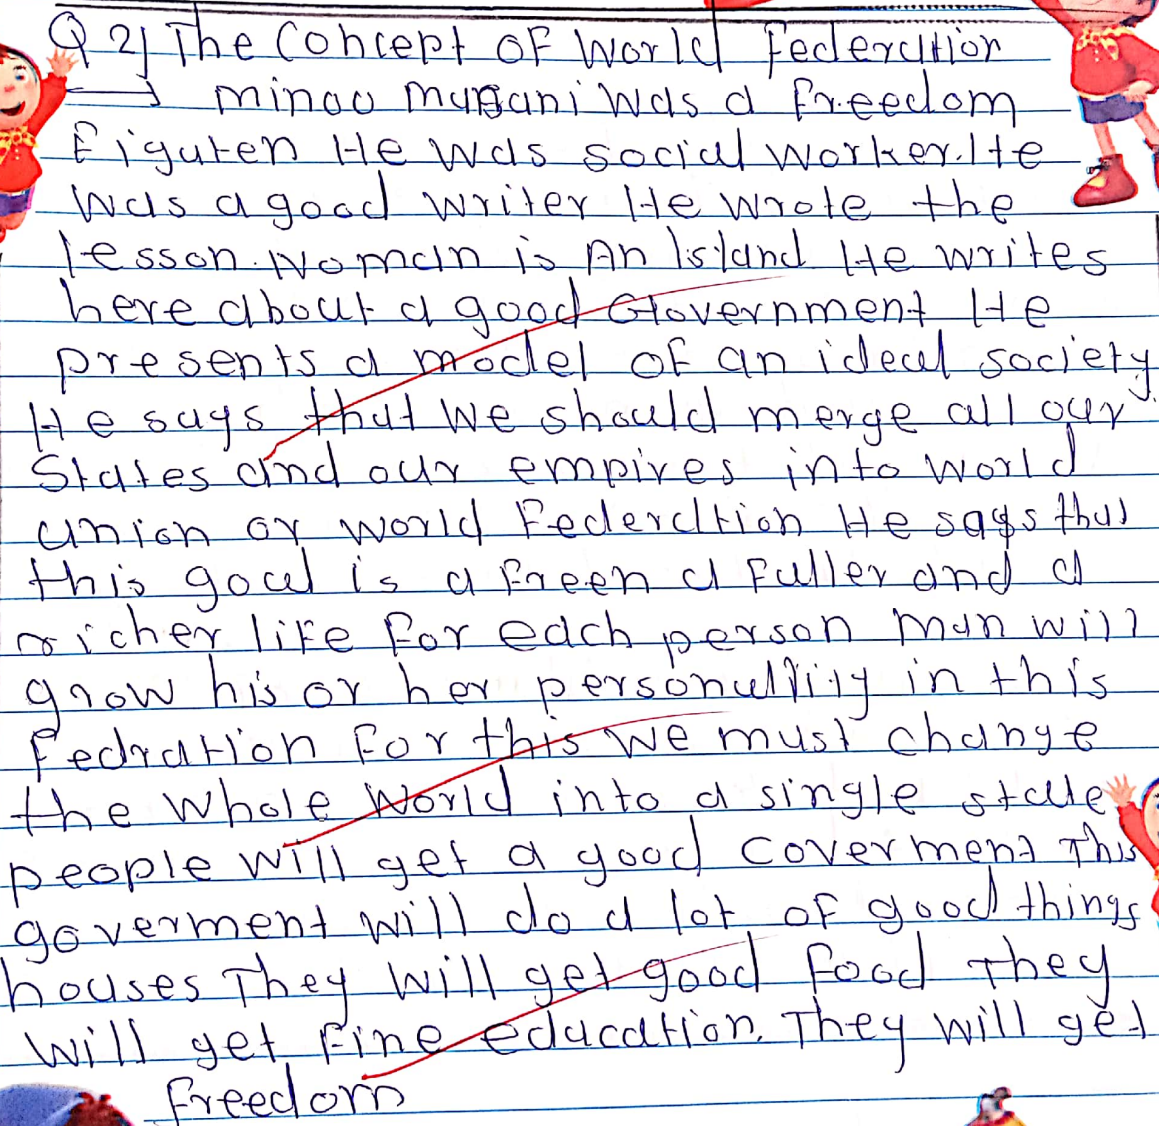 Q 2) The Concept OF World Federation
minoo masani was a freedom
Figuren He was social worker. He
was a good writer He wrote the
lesson. Noman is An Island He writes
here about a good Government He
presents a model OF an ideal society
He says that we should merge all our
States and our empires into world
union or world Federation He says that
this goal is a Freen a Fuller and a
richer life For each person man will
grow his or her personulity in this
Fedration For this we must change
the whole World into a single state
people will get a good Coverment This
goverment will do a lot OF good things
houses They will get good food They
will get Fine education. They will get
freedom